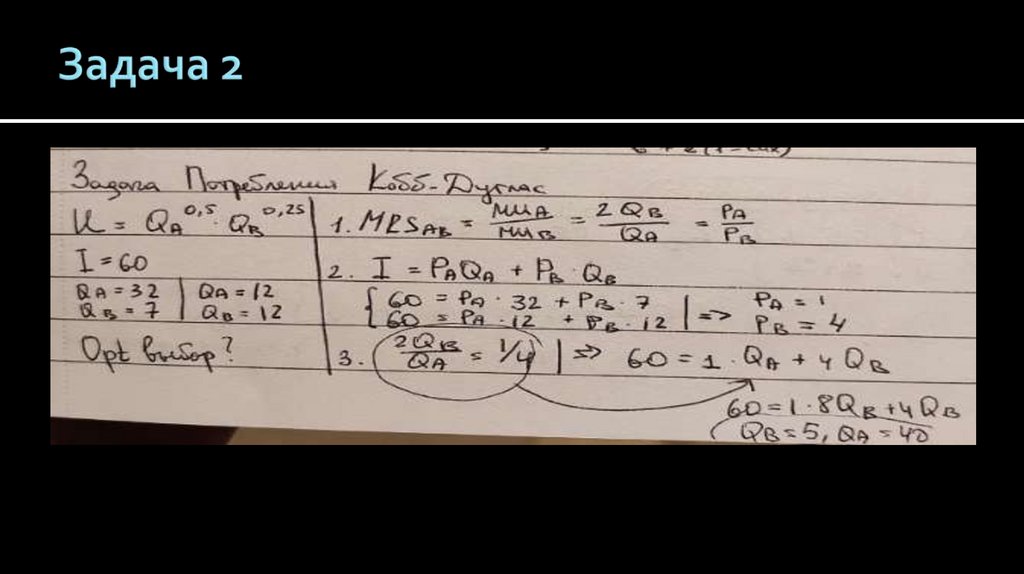 Задача 2
Задача Потребления Кобб-Дуглас
U = QA^0,5 · QB^0,25
I = 60
QA = 32 | QA = 12
QB = 7 | QB = 12
Opt выбор?
1. MRSAB = MUA/MUB = 2QB/QA = PA/PB
2. I = PAQA + PB · QB
{ 60 = PA · 32 + PB · 7 | => PA = 1
60 = PA · 12 + PB · 12 | => PB = 4
3. 2QB/QA = 1/4 | => 60 = 1 · QA + 4QB
60 = 1 · 8QB + 4QB
QB = 5, QA = 40